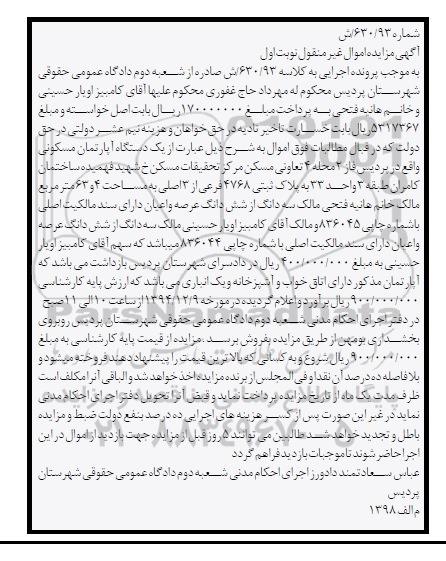 شماره ۶۳۰/۹۳/ش
آگهی مزایده اموال غیر منقول نوبت اول
به موجب پرونده اجرایی به کلاسه ۶۳۰/۹۳/ش صادره از شعبه دوم دادگاه عمومی حقوقی
شهرستان پردیس محکوم له مهرداد حاج غفوری محکوم علیها آقای کامبیز اویار حسینی
و خانم هانیه فتحی به پرداخت مبلغ ۱۷۰۰۰۰۰۰۰ ریال بابت اصل خواسته و مبلغ
۵۳۱۷۳۶۷ ریال بابت خسارت تاخیر تادیه در حق خواهان و هزینه نیم عشر دولتی در حق
دولت که در قبال مطالبات فوق اموال به شرح ذیل عبارت از یک دستگاه آپارتمان مسکونی
واقع در پردیس فاز ۲ محله ۴ تعاونی مسکن مرکز تحقیقات مسکن خ شهید فهمیده ساختمان
کامران طبقه ۳ واحد ۳۳ به پلاک ثبتی ۴۷۶۸ فرعی از ۳ اصلی به مساحت ۶۳/۰۴ متر مربع
مالک خانم هانیه فتحی مالک سه دانگ از شش دانگ عرصه واعیان دارای سند مالکیت اصلی
باشماره چاپی ۸۳۶۰۴۵ و مالک آقای کامبیز اویار حسینی مالک سه دانگ از شش دانگ عرصه
واعیان دارای سند مالکیت اصلی با شماره چاپی ۸۳۶۰۴۴ میباشد که سهم آقای کامبیز اویار
حسینی به مبلغ ۴۰۰/۰۰۰/۰۰۰ ریال در دادسرای شهرستان پردیس بازداشت می باشد که
آپارتمان مذکور دارای اتاق خواب و آشپزخانه ویک انباری می باشد که ارزش پایه کارشناسی
۹۰۰/۰۰۰/۰۰۰ ریال برآورد و اعلام گردیده در مورخه ۱۳۹۴/۱۲/۹ از ساعت ۱۰ الی ۱۱ صبح
در دفتر اجرای احکام مدنی شعبه دوم دادگاه عمومی حقوقی شهرستان پردیس روبروی
بخشداری بومهن از طریق مزایده بفروش برسد. مزایده از قیمت پایه کارشناسی به مبلغ
۹۰۰/۰۰۰/۰۰۰ ریال شروع و به کسانی که بالاترین قیمت را پیشنهاد دهند فروخته میشود و
بلافاصله ده درصد آن نقدا و فی المجلس از برنده مزایده اخذ خواهد شد و الباقی آنرا مکلف است
ظرف مدت یک ماه از تاریخ مزایده پرداخت نماید و قبض آنرا تحویل دفتر اجرای احکام مدنی
نماید در غیر این صورت پس از کسر هزینه های اجرایی ده درصد بنفع دولت ضبط و مزایده
باطل و تجدید خواهد شد طالبین می توانند ۵ روز قبل از مزایده جهت بازدید از اموال در این
اجرا حاضر شوند تا موجبات بازدید فراهم گردد
عباس سعادتمند دادورز اجرای احکام مدنی شعبه دوم دادگاه عمومی حقوقی شهرستان
پردیس
م الف ۱۳۹۸